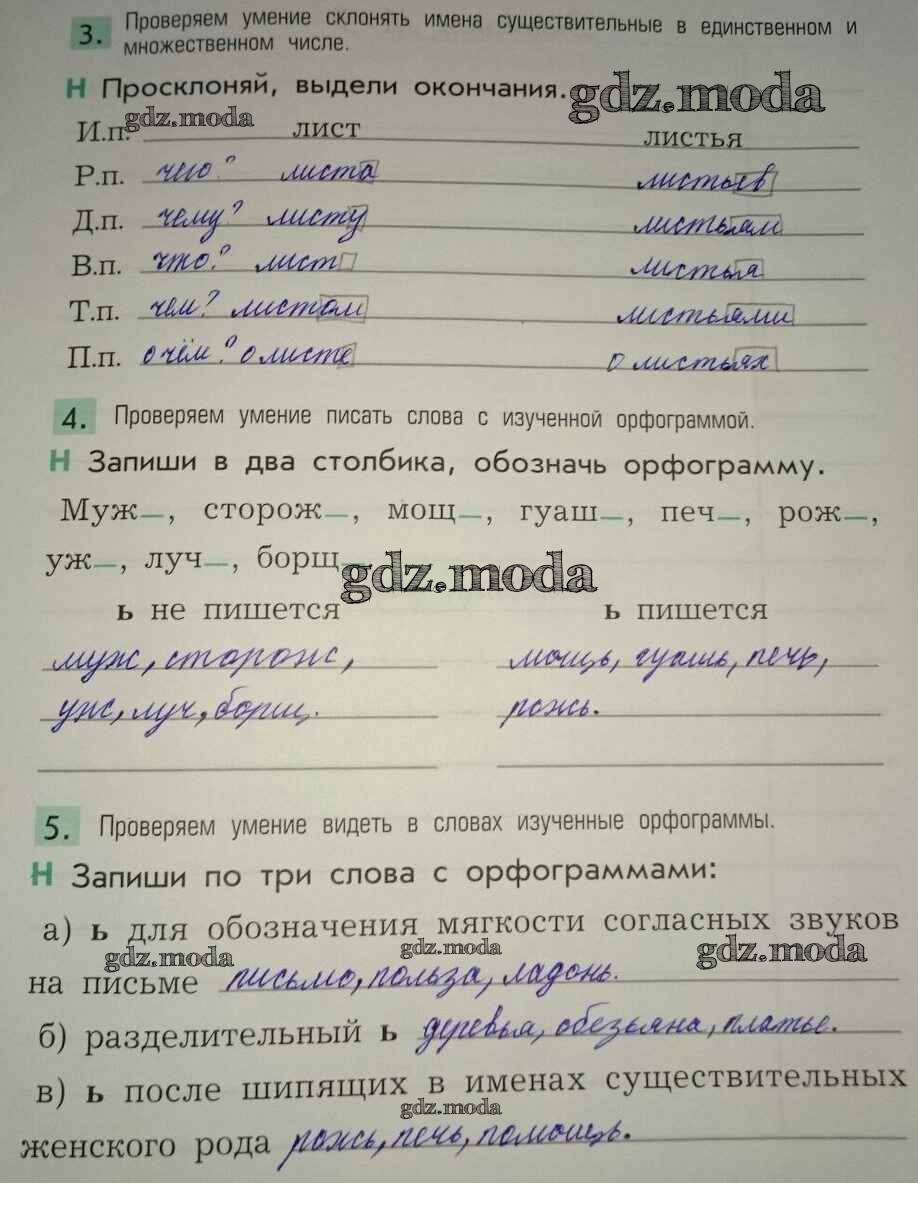 3. Проверяем умение склонять имена существительные в единственном и
множественном числе.
Н Просклоняй, выдели окончания. gdz.moda
И.п. gdz.moda лист листья
Р.п. чего? листа листьев
Д.п. чему? листу листьям
В.п. что? лист листья
Т.п. чем? листом листьями
П.п. о чём? о листе о листьях
4. Проверяем умение писать слова с изученной орфограммой.
Н Запиши в два столбика, обозначь орфограмму.
Муж_, сторож_, мощ_, гуаш_, печ_, рож_,
уж_, луч_, борщ_ gdz.moda
ь не пишется ь пишется
муж, сторож, мощь, гуашь, печь,
уж, луч, борщ. рожь.
5. Проверяем умение видеть в словах изученные орфограммы.
Н Запиши по три слова с орфограммами:
а) ь для обозначения мягкости согласных звуков
gdz.moda gdz.moda gdz.moda
на письме письмо, польза, ладонь.
б) разделительный ь деревья, обезьяна, платье.
в) ь после шипящих в именах существительных
gdz.moda
женского рода рожь, печь, помощь.